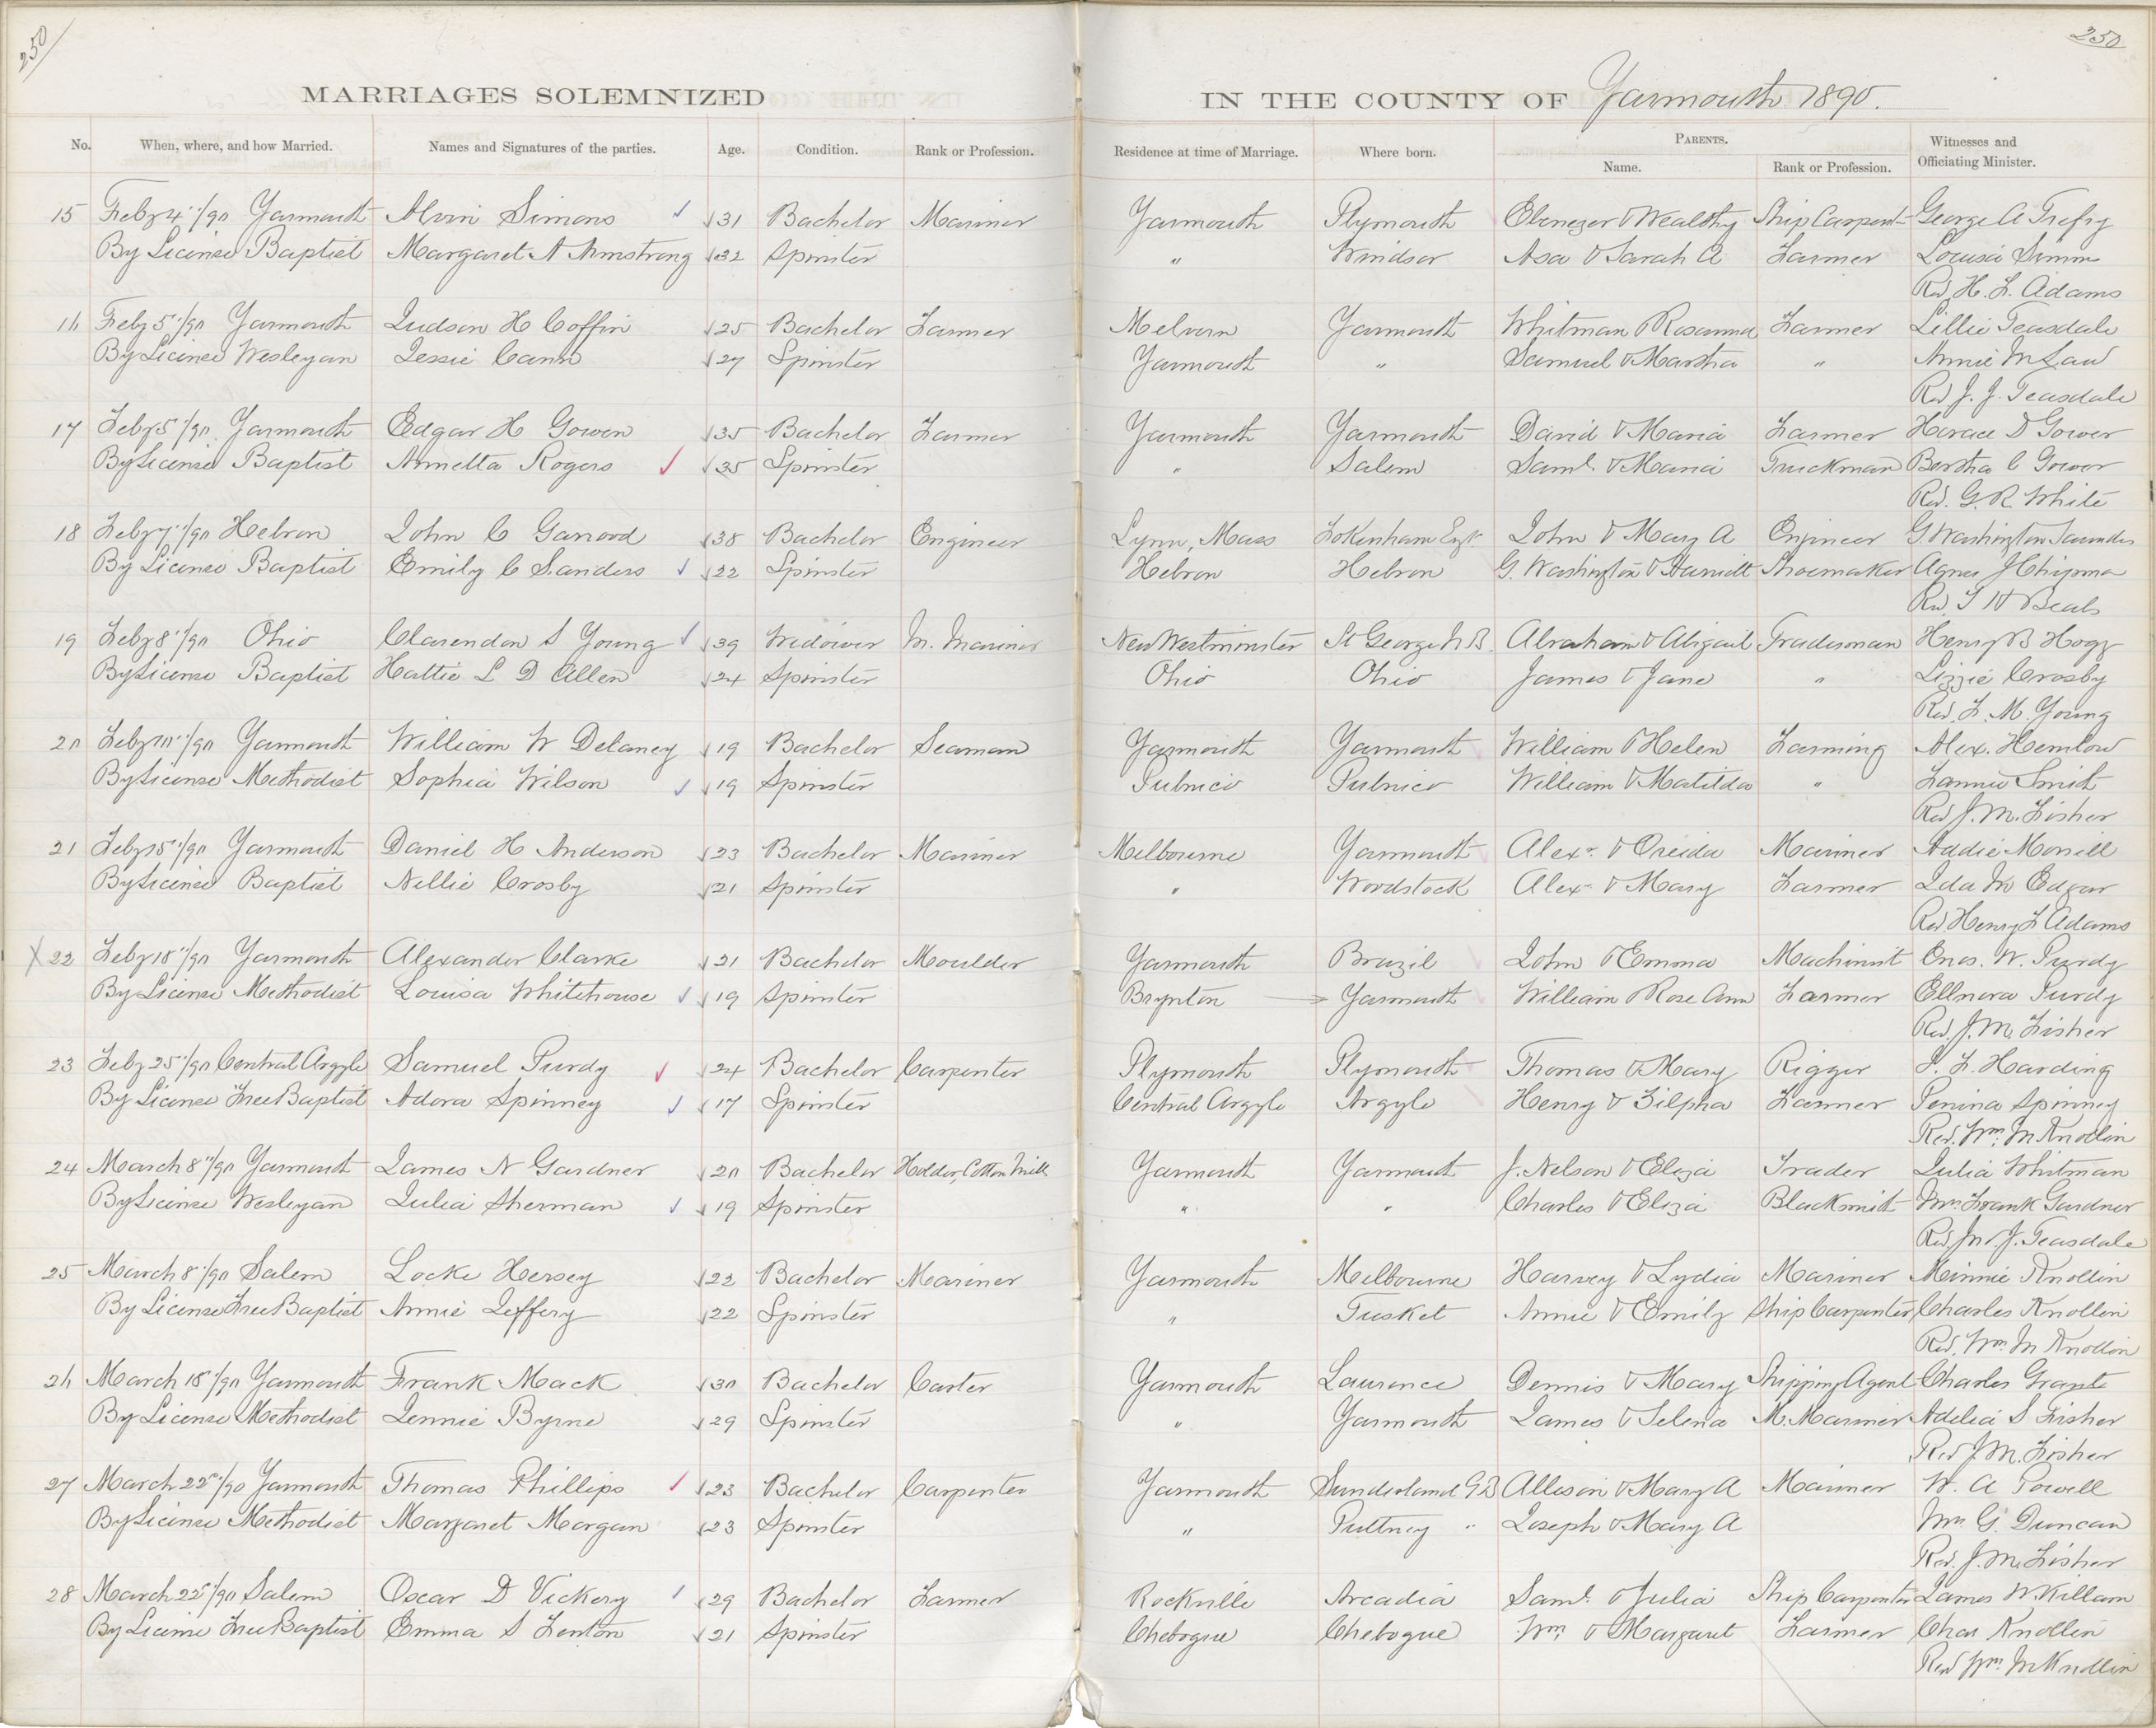 250
250
MARRIAGES SOLEMNIZED IN THE COUNTY OF Yarmouth 1890.
No. When, where, and how Married. Names and Signatures of the parties. Age. Condition. Rank or Profession. Residence at time of Marriage. Where born. PARENTS. Witnesses and
Name. Rank or Profession. Officiating Minister.
15 Feby 4"/90 Yarmouth Alvin Simons 31 Bachelor Mariner Yarmouth Plymouth Ebenezer & Wealthy Ship Carpent George A Trefry
By License Baptist Margaret A Armstrong 32 Spinster " Windsor Asa & Sarah A Farmer Louisa Simm
Rev H. F. Adams
16 Feby 5"/90 Yarmouth Judson H Coffin 25 Bachelor Farmer Melvern Yarmouth Whitman & Rosanna Farmer Lillie Teasdale
By License Wesleyan Jessie Cann 27 Spinster Yarmouth " Samuel & Martha " Annie M Law
Rev J. J. Teasdale
17 Feby 5"/90 Yarmouth Edgar H Gowen 35 Bachelor Farmer Yarmouth Yarmouth David & Maria Farmer Horace D Gower
By License Baptist Annetta Rogers 35 Spinster " Salem Saml. & Maria Truckman Bertha C Gower
Rev. G. R. White
18 Feby 7"/90 Hebron John C Garrood 38 Bachelor Engineer Lynn, Mass Fokenham Eng. John & Mary A Engineer G Washington Saunders
By License Baptist Emily C Sanders 22 Spinster Hebron Hebron G. Washington & Harriett Shoemaker Agnes J Chipma
Rev. F H Beals
19 Feby 8"/90 Ohio Clarendon S Young 39 Widower M. Mariner New Westminster St George N.B. Abraham & Abigail Tradesman Henry B Hogg
By License Baptist Hattie L D Allen 24 Spinster Ohio Ohio James & Jane " Lizzie Crosby
Rev. F. M. Young
20 Feby 10"/90 Yarmouth William W Delaney 19 Bachelor Seaman Yarmouth Yarmouth William & Helen Farming Alex. Hemlow
By License Methodist Sophia Wilson 19 Spinster Pubnico Pubnico William & Matilda " Fannie Smith
Rev J. M. Fisher
21 Feby 15"/90 Yarmouth Daniel H Anderson 23 Bachelor Mariner Melbourne Yarmouth Alexr. & Oreida Mariner Addie Morrill
By License Baptist Nellie Crosby 21 Spinster " Woodstock Alexr & Mary Farmer Ida M Edgar
Rev Henry F Adams
X 22 Feby 18"/90 Yarmouth Alexander Clarke 21 Bachelor Moulder Yarmouth Brazil John & Emma Machinist Enos. W. Purdy
By License Methodist Louisa Whitehouse 19 Spinster Boynton Yarmouth William & Rose Ann Farmer Ellnora Purdy
Rev. J. M. Fisher
23 Feby 25"/90 Central Argyle Samuel Purdy 24 Bachelor Carpenter Plymouth Plymouth Thomas & Mary Rigger J. F. Harding
By License Free Baptist Adora Spinney 17 Spinster Central Argyle Argyle Henry & Zilpha Farmer Penina Spinney
Rev. Wm. M Knollin
24 March 8"/90 Yarmouth James N Gardner 20 Bachelor Holder, Cotton Mill Yarmouth Yarmouth J. Nelson & Eliza Trader Julia Whitman
By License Wesleyan Julia Sherman 19 Spinster " " Charles & Eliza Blacksmith Mrs. Frank Gardner
Rev J. Teasdale
25 March 8"/90 Salem Locke Hersey 22 Bachelor Mariner Yarmouth Melbourne Harvey & Lydia Mariner Minnie Knollin
By License Free Baptist Annie Jeffery 22 Spinster " Tusket Annie & Emily Ship Carpenter Charles Knollin
Rev. Wm. M Knollin
26 March 18"/90 Yarmouth Frank Mack 30 Bachelor Carter Yarmouth Laurence Dennis & Mary Shipping Agent Charles Grante
By License Methodist Jennie Byrne 29 Spinster " Yarmouth James & Selena M. Mariner Adelia S Fisher
Rev J M. Fisher
27 March 22"/90 Yarmouth Thomas Phillips 23 Bachelor Carpenter Yarmouth Sunderland G B Allison & Mary A Mariner W. A Powell
By License Methodist Margaret Morgan 23 Spinster " Pultney " Joseph & Mary A Mrs G. Duncan
Rev. J. M. Fisher
28 March 22"/90 Salem Oscar D Vickery 29 Bachelor Farmer Rockville Arcadia Saml. & Julia Ship Carpenter James W Killam
By License Free Baptist Emma S Fenton 21 Spinster Chebogue Chebogue Wm. & Margaret Farmer Chas Knollin
Rev Wm. M Knollin